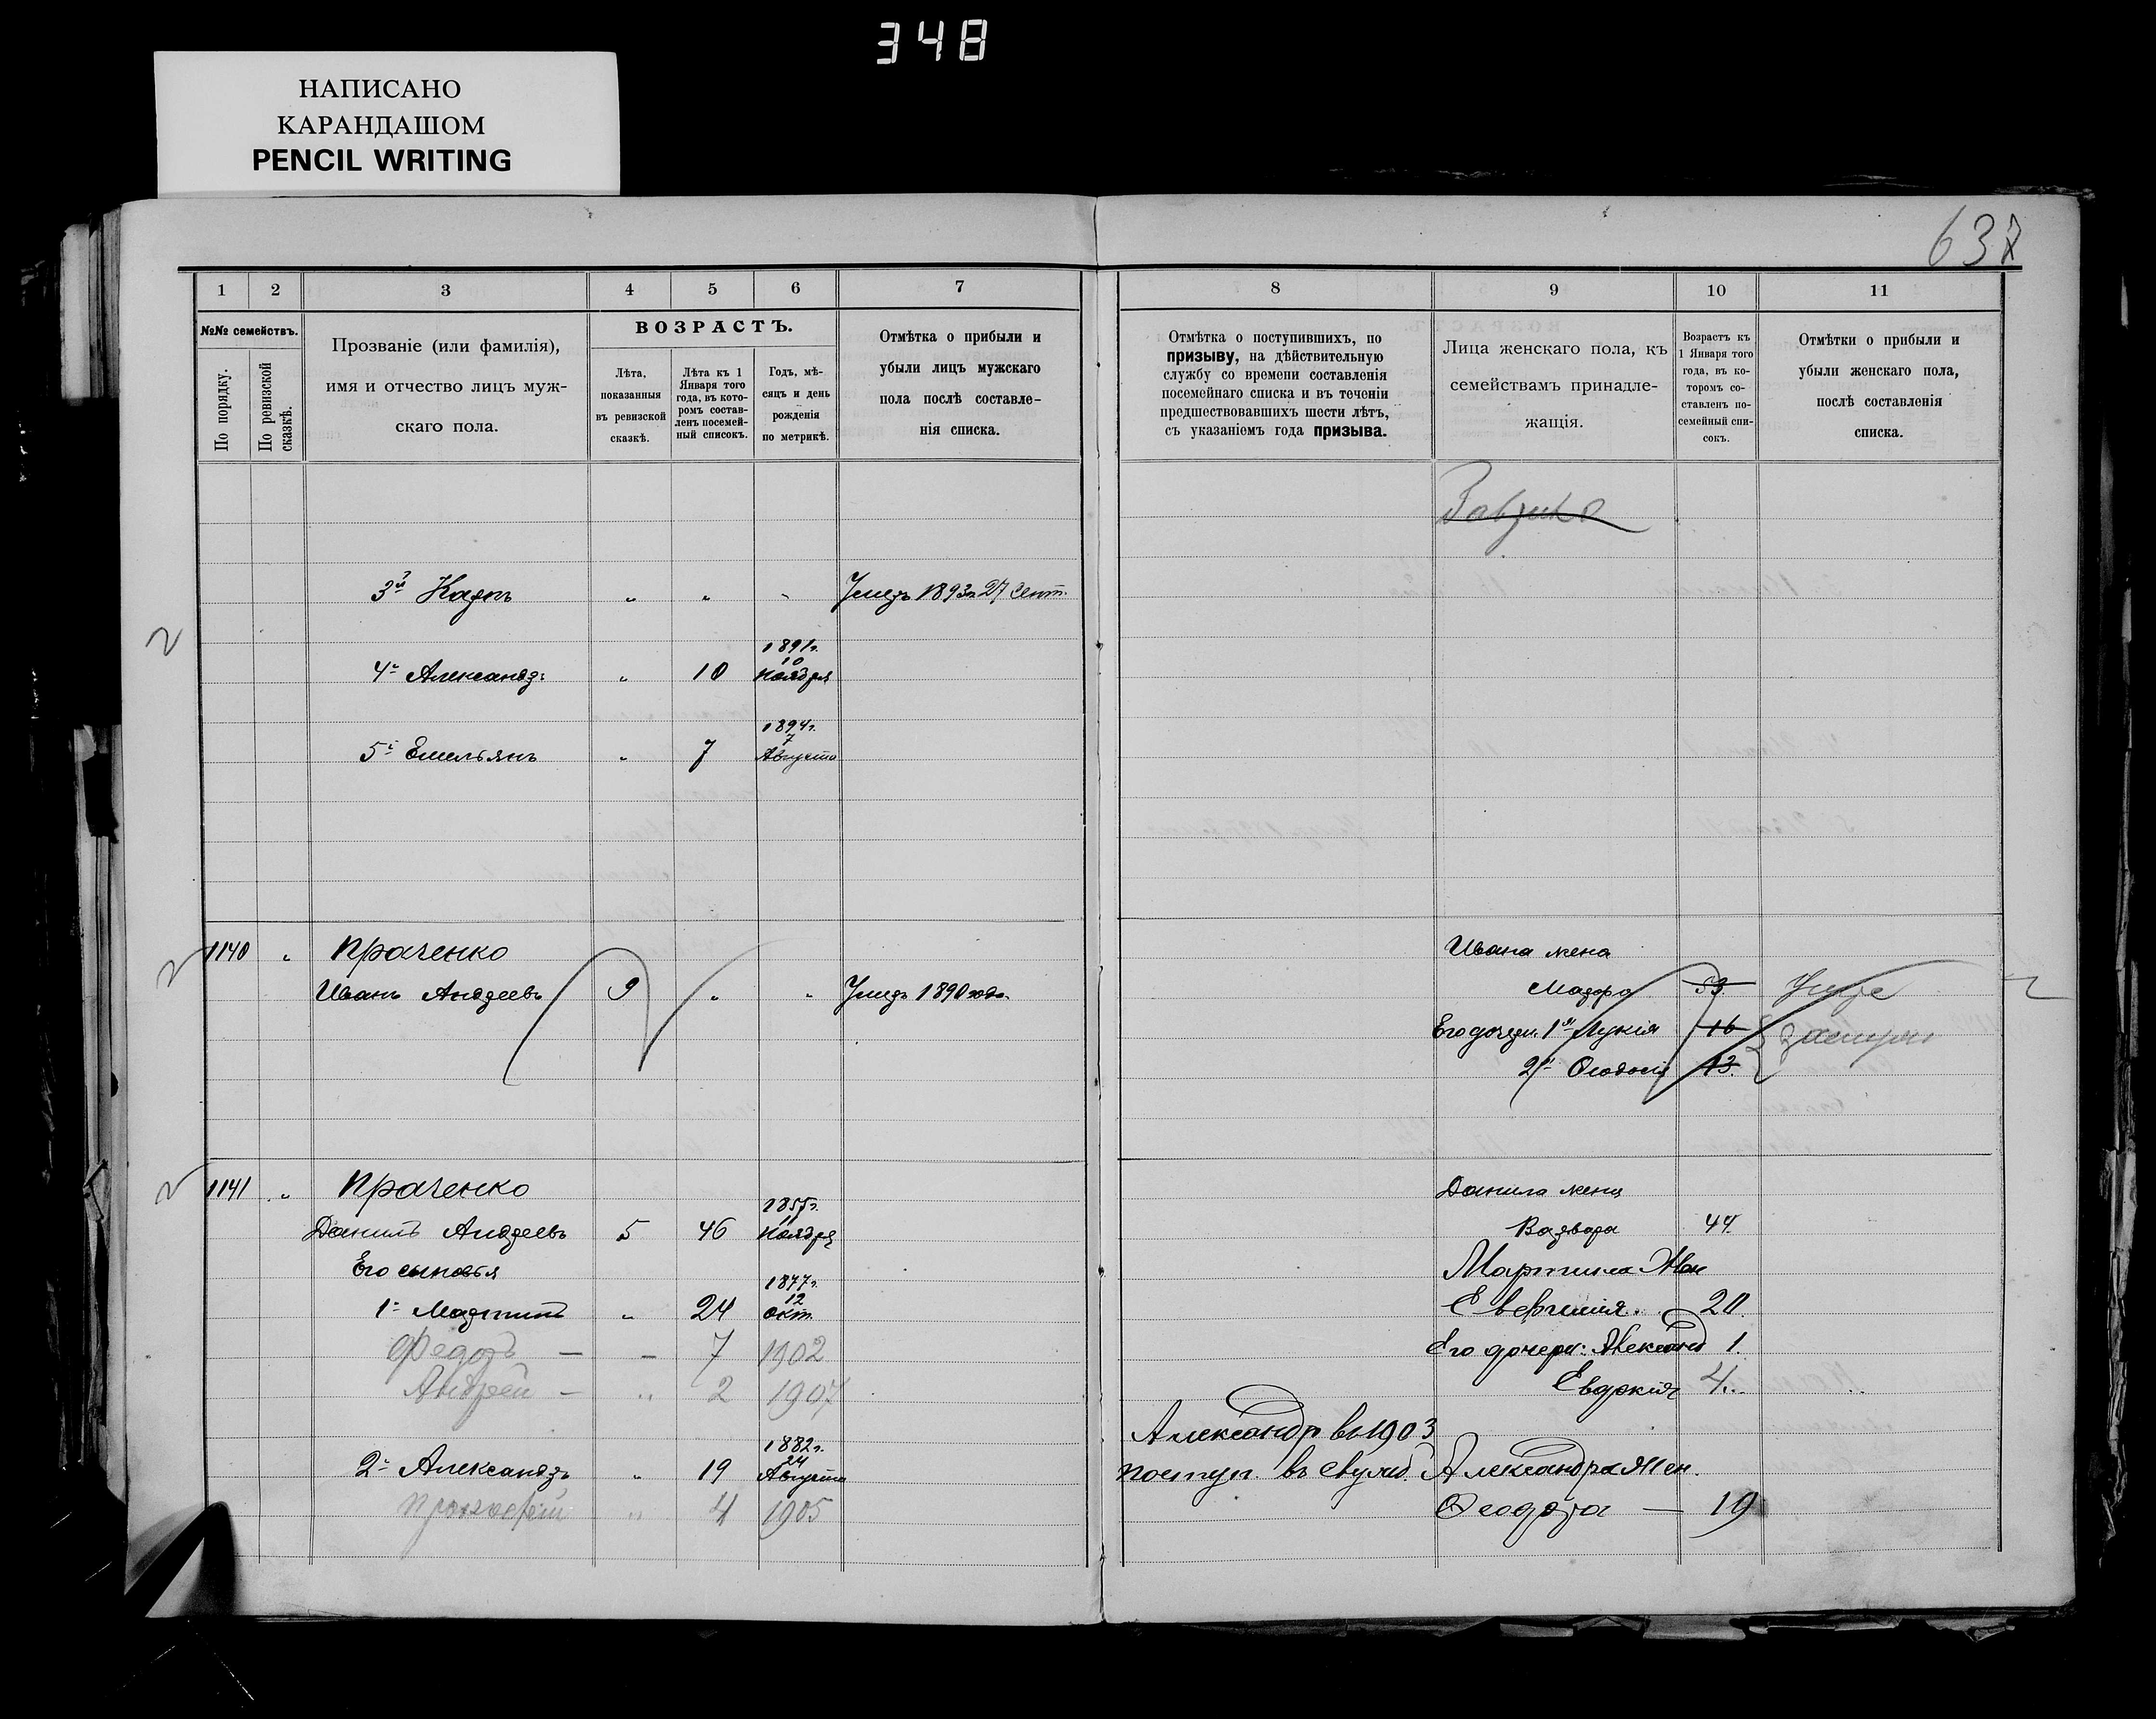 348
НАПИСАНО
КАРАНДАШОМ
PENCIL WRITING
637
1 2 3 4 5 6 7
№№ семействъ.
По порядку.
По ревизской сказкѣ.
Прозваніе (или фамилія),
имя и отчество лицъ муж-
скаго пола.
ВОЗРАСТЪ.
Лѣта,
показанныя
въ ревизской
сказкѣ.
Лѣта къ 1
Января того
года, въ кото-
ромъ состав-
ленъ посемей-
ный списокъ.
Годъ, мѣ-
сяцъ и день
рожденія
по метрикѣ.
Отмѣтка о прибыли и
убыли лицъ мужскаго
пола послѣ составле-
нія списка.
3й Карпъ " " " Умеръ 1893г. 27 Сент.
1891г.
10
4й Александръ " 10 Ноября
1894г.
7
5й Емельянъ " 7 Августа
1140 " Праченко
Иванъ Андреевъ 9 " " Умеръ 1890 года.
1141 " Праченко
1855г.
11
Данилъ Андреевъ 5 46 Ноября
Его сыновья
1877г.
12
1й Мартинъ " 24 Окт.
Федоръ — — 7 1902
Андрей — " 2 1907
1882г.
24
2й Александръ " 19 Августа
Прокофій " 4 1905
8 9 10 11
Отмѣтка о поступившихъ, по
призыву, на дѣйствительную
службу со времени составленія
посемейнаго списка и въ теченіи
предшествовавшихъ шести лѣтъ,
съ указаніемъ года призыва.
Лица женскаго пола, къ
семействамъ принадле-
жащія.
Возрастъ къ
1 Января того
года, въ ко-
торомъ со-
ставленъ по-
семейный спи-
сокъ.
Отмѣтки о прибыли и
убыли женскаго пола,
послѣ составленія
списка.
Ивана жена
53.
Его дочери: 1я Лукія 16
2я Феодосія 13.
Данила жена
Варвара 44.
Мартина Жен
20
Его дочери: Александ 1.
Евдокія 4.
Александр въ 1903
поступ. въ служб. Александра Жен.
Феодора — 19